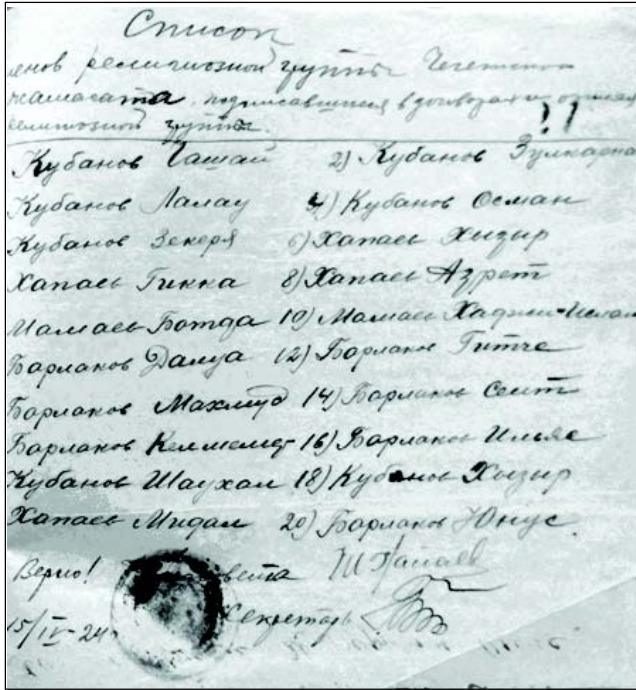 Список
енов религиозной группы Чегетского
жамагата, подписавшиеся в договорах и
елигиозной группы.
Кубанов Гашай 2) Кубанов Зулкарна
Кубанов Лалау 4) Кубанов Осман
Кубанов Зекеря 6) Хапаев Хызыр
Хапаев Гинна 8) Хапаев Азрет
Мамаев Ботда 10) Мамаев Хаджи-Ислам
Барлаков Далуа 12) Барлаков Гитче
Барлаков Махмуд 14) Барлаков Сеит
Барлаков Келлемет 16) Барлаков Ильяс
Кубанов Шаухал 18) Кубанов Хызыр
Хапаев Мидал 20) Барлаков Юнус.
Верно! вета Ш Хапаев
15/IV-24 Секретарь